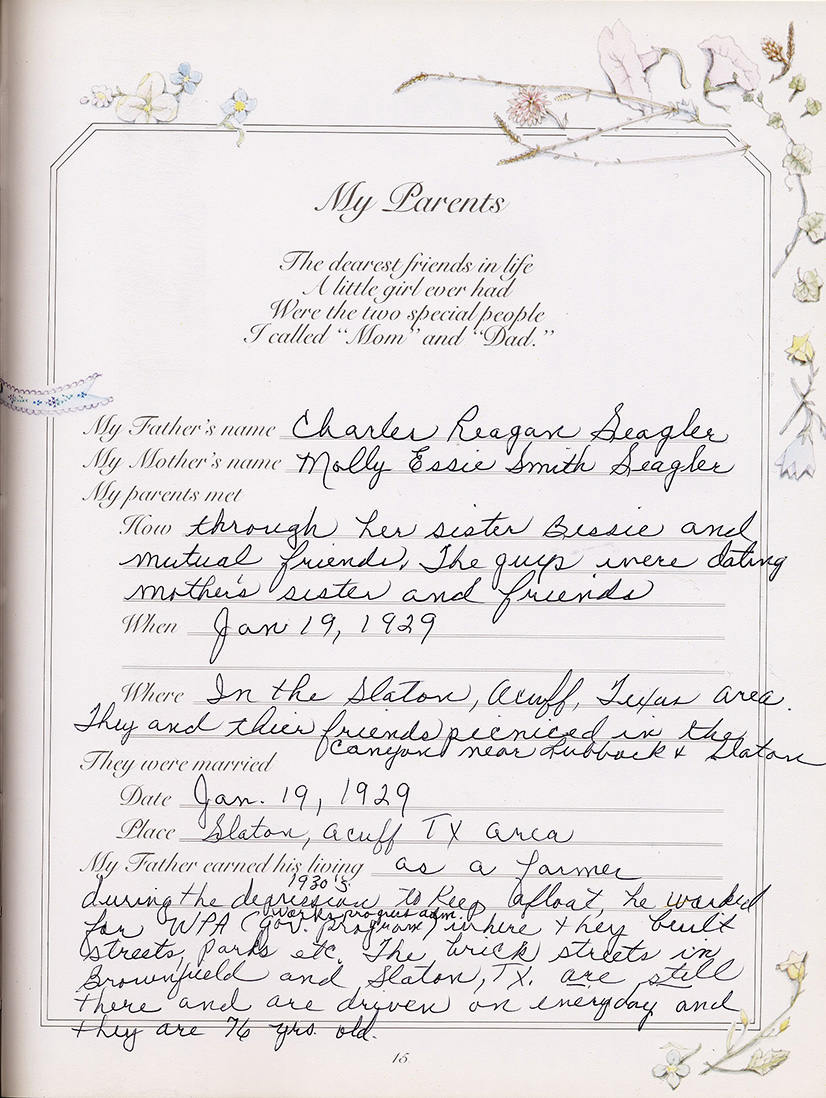 My Parents
The dearest friends in life
A little girl ever had
Were the two special people
I called "Mom" and "Dad."
My Father's name Charles Reagan Seagler
My Mother's name Molly Essie Smith Seagler
My parents met
How through her sister Bessie and
mutual friends. The guys were dating
mother's sister and friends
When Jan 19, 1929
Where In the Slaton, Acuff, Texas area.
They and thier friends picniced in the
canyon near Lubbock & Slaton
They were married
Date Jan. 19, 1929
Place Slaton, Acuff TX area
My Father earned his living as a farmer
1930's
during the depression to keep afloat he worked
works progress adm.
for WPA (gov. program) where they built
streets, parks etc. The brick streets in
Brownfield and Slaton, TX. are still
there and are driven on everyday and
they are 76 yrs. old.
15